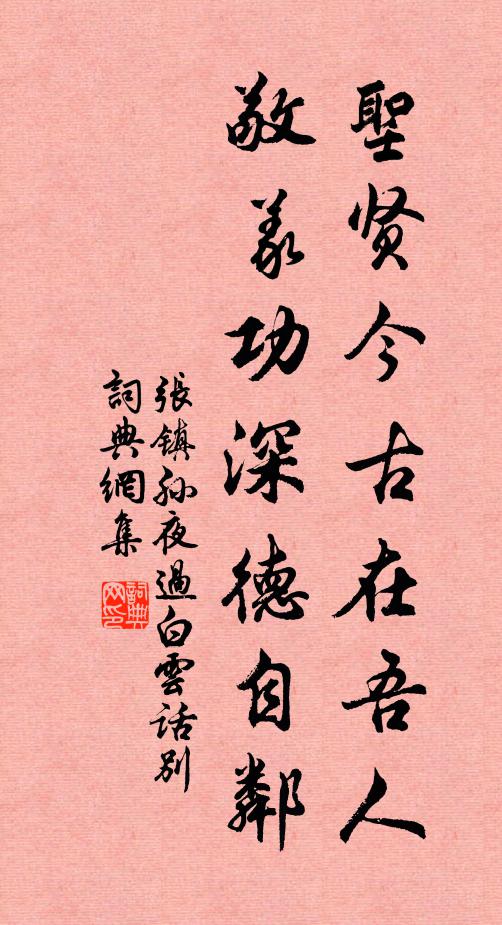 聖贤今古在吾人
敬義功深德自鄰
張鎮孫夜過白雲話別
詞典網集
詞典网印